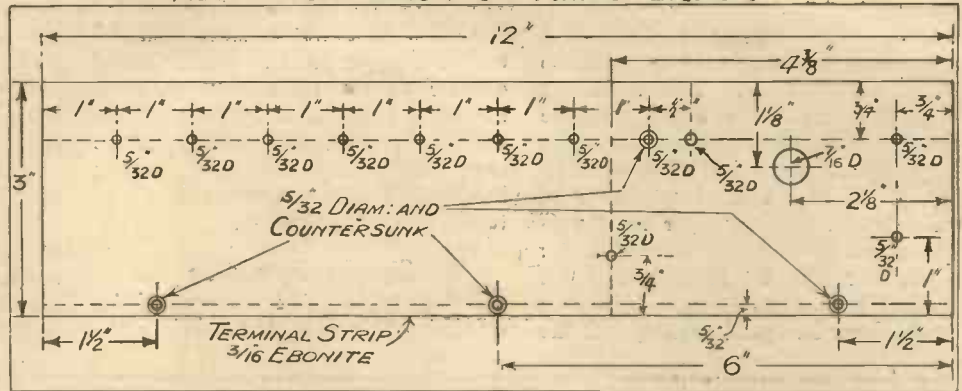 12"
4 3/8"
1" 1" 1" 1" 1" 1" 1" 1" 1/2" 1 1/8" 3/4" 3/4"
5/32"D 5/32"D 5/32"D 5/32"D 5/32"D 5/32"D 5/32"D 5/32"D 5/32"D 7/16"D 5/32"D
3"
2 1/8"
5/32" DIAM: AND
COUNTERSUNK
5/32"D
5/32"D
3/4"
1"
TERMINAL STRIP
3/16" EBONITE
5/32"
1 1/2" 6" 1 1/2"